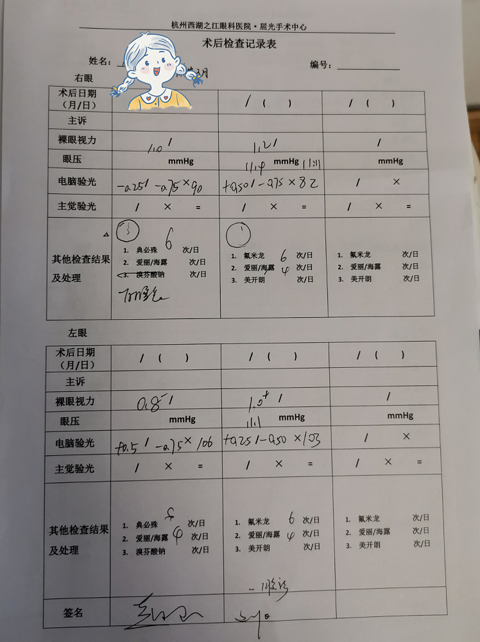 杭州西湖之江眼科医院·屈光手术中心
术后检查记录表
姓名： 编号：
右眼
术后日期（月/日） / ( ) / ( )
主诉
裸眼视力 1.0 / 1.2 / /
眼压 mmHg 11.4 mmHg 11.1 mmHg
电脑验光 -0.25 / -0.75 × 90 +0.50 / -0.75 × 82 / ×
主觉验光 / × = / × = / × =
其他检查结果及处理
1. 典必殊 6 次/日 1. 氟米龙 6 次/日 1. 氟米龙 次/日
2. 爱丽/海露 次/日 2. 爱丽/海露 4 次/日 2. 爱丽/海露 次/日
3. 溴芬酸钠 次/日 3. 美开朗 次/日 3. 美开朗 次/日
左眼
术后日期（月/日） / ( ) / ( ) / ( )
主诉
裸眼视力 0.8- / 1.0+ / /
眼压 mmHg 11.1 mmHg mmHg
电脑验光 +0.5 / -0.75 × 106 +0.25 / -0.50 × 103 / ×
主觉验光 / × = / × = / × =
其他检查结果及处理
1. 典必殊 次/日 1. 氟米龙 6 次/日 1. 氟米龙 次/日
2. 爱丽/海露 4 次/日 2. 爱丽/海露 4 次/日 2. 爱丽/海露 次/日
3. 溴芬酸钠 次/日 3. 美开朗 次/日 3. 美开朗 次/日
签名